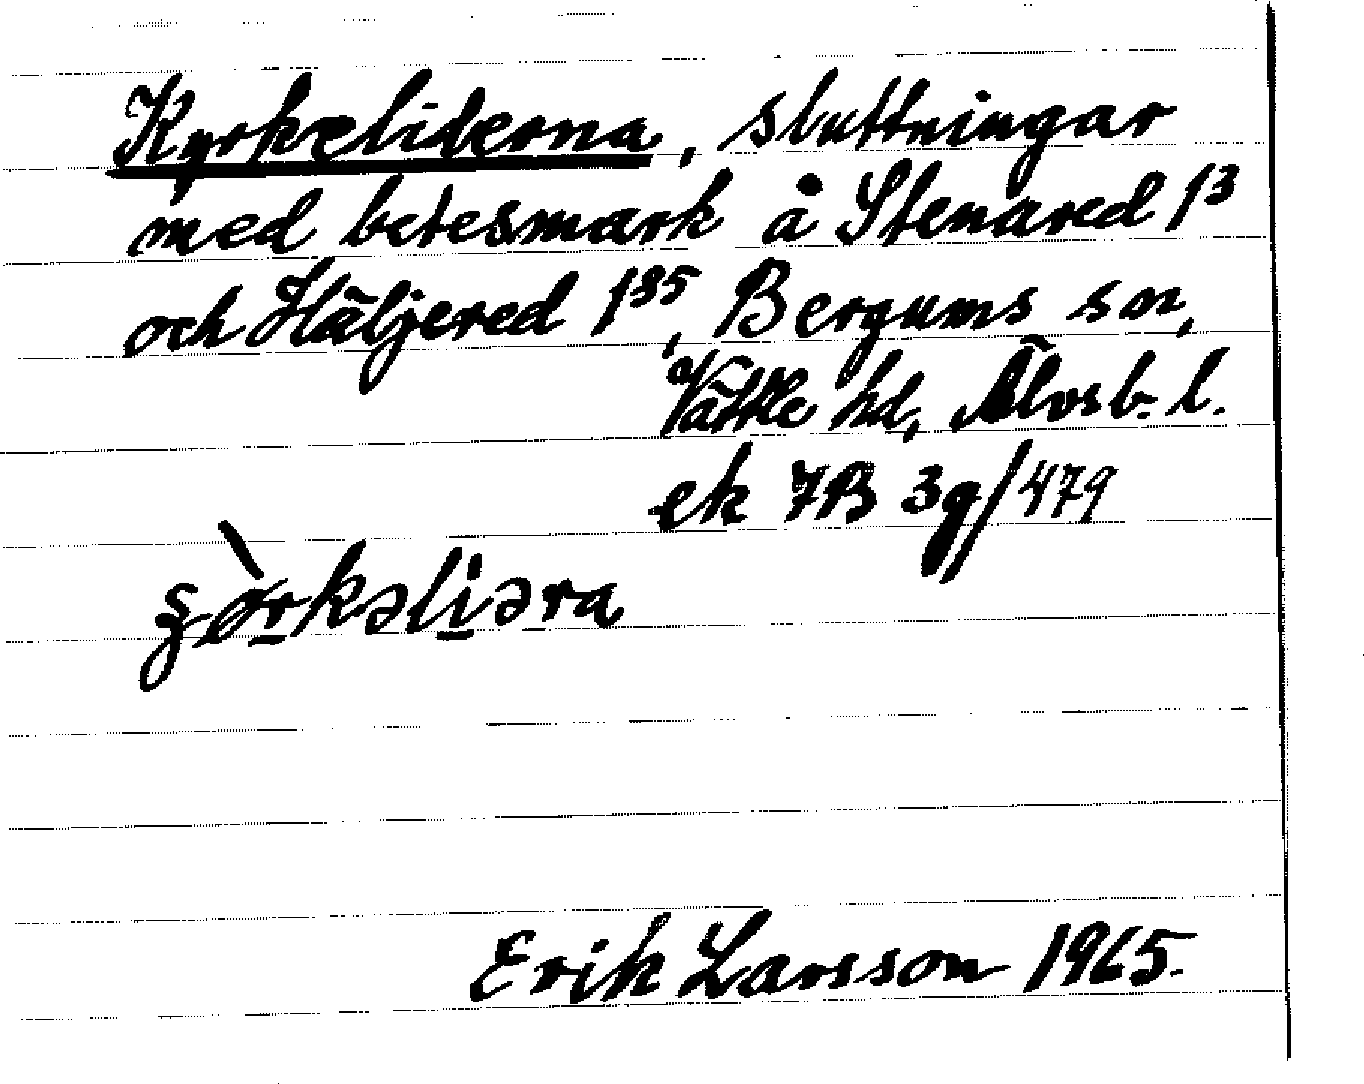 Kyrkeliderna, sluttningar
med betesmark å Stenared 1³
och Häljered 1³⁵, Bergums sn,
Vättle hd, Älvsb. l.
ek 7B 3g/479
Erik Larsson 1965.